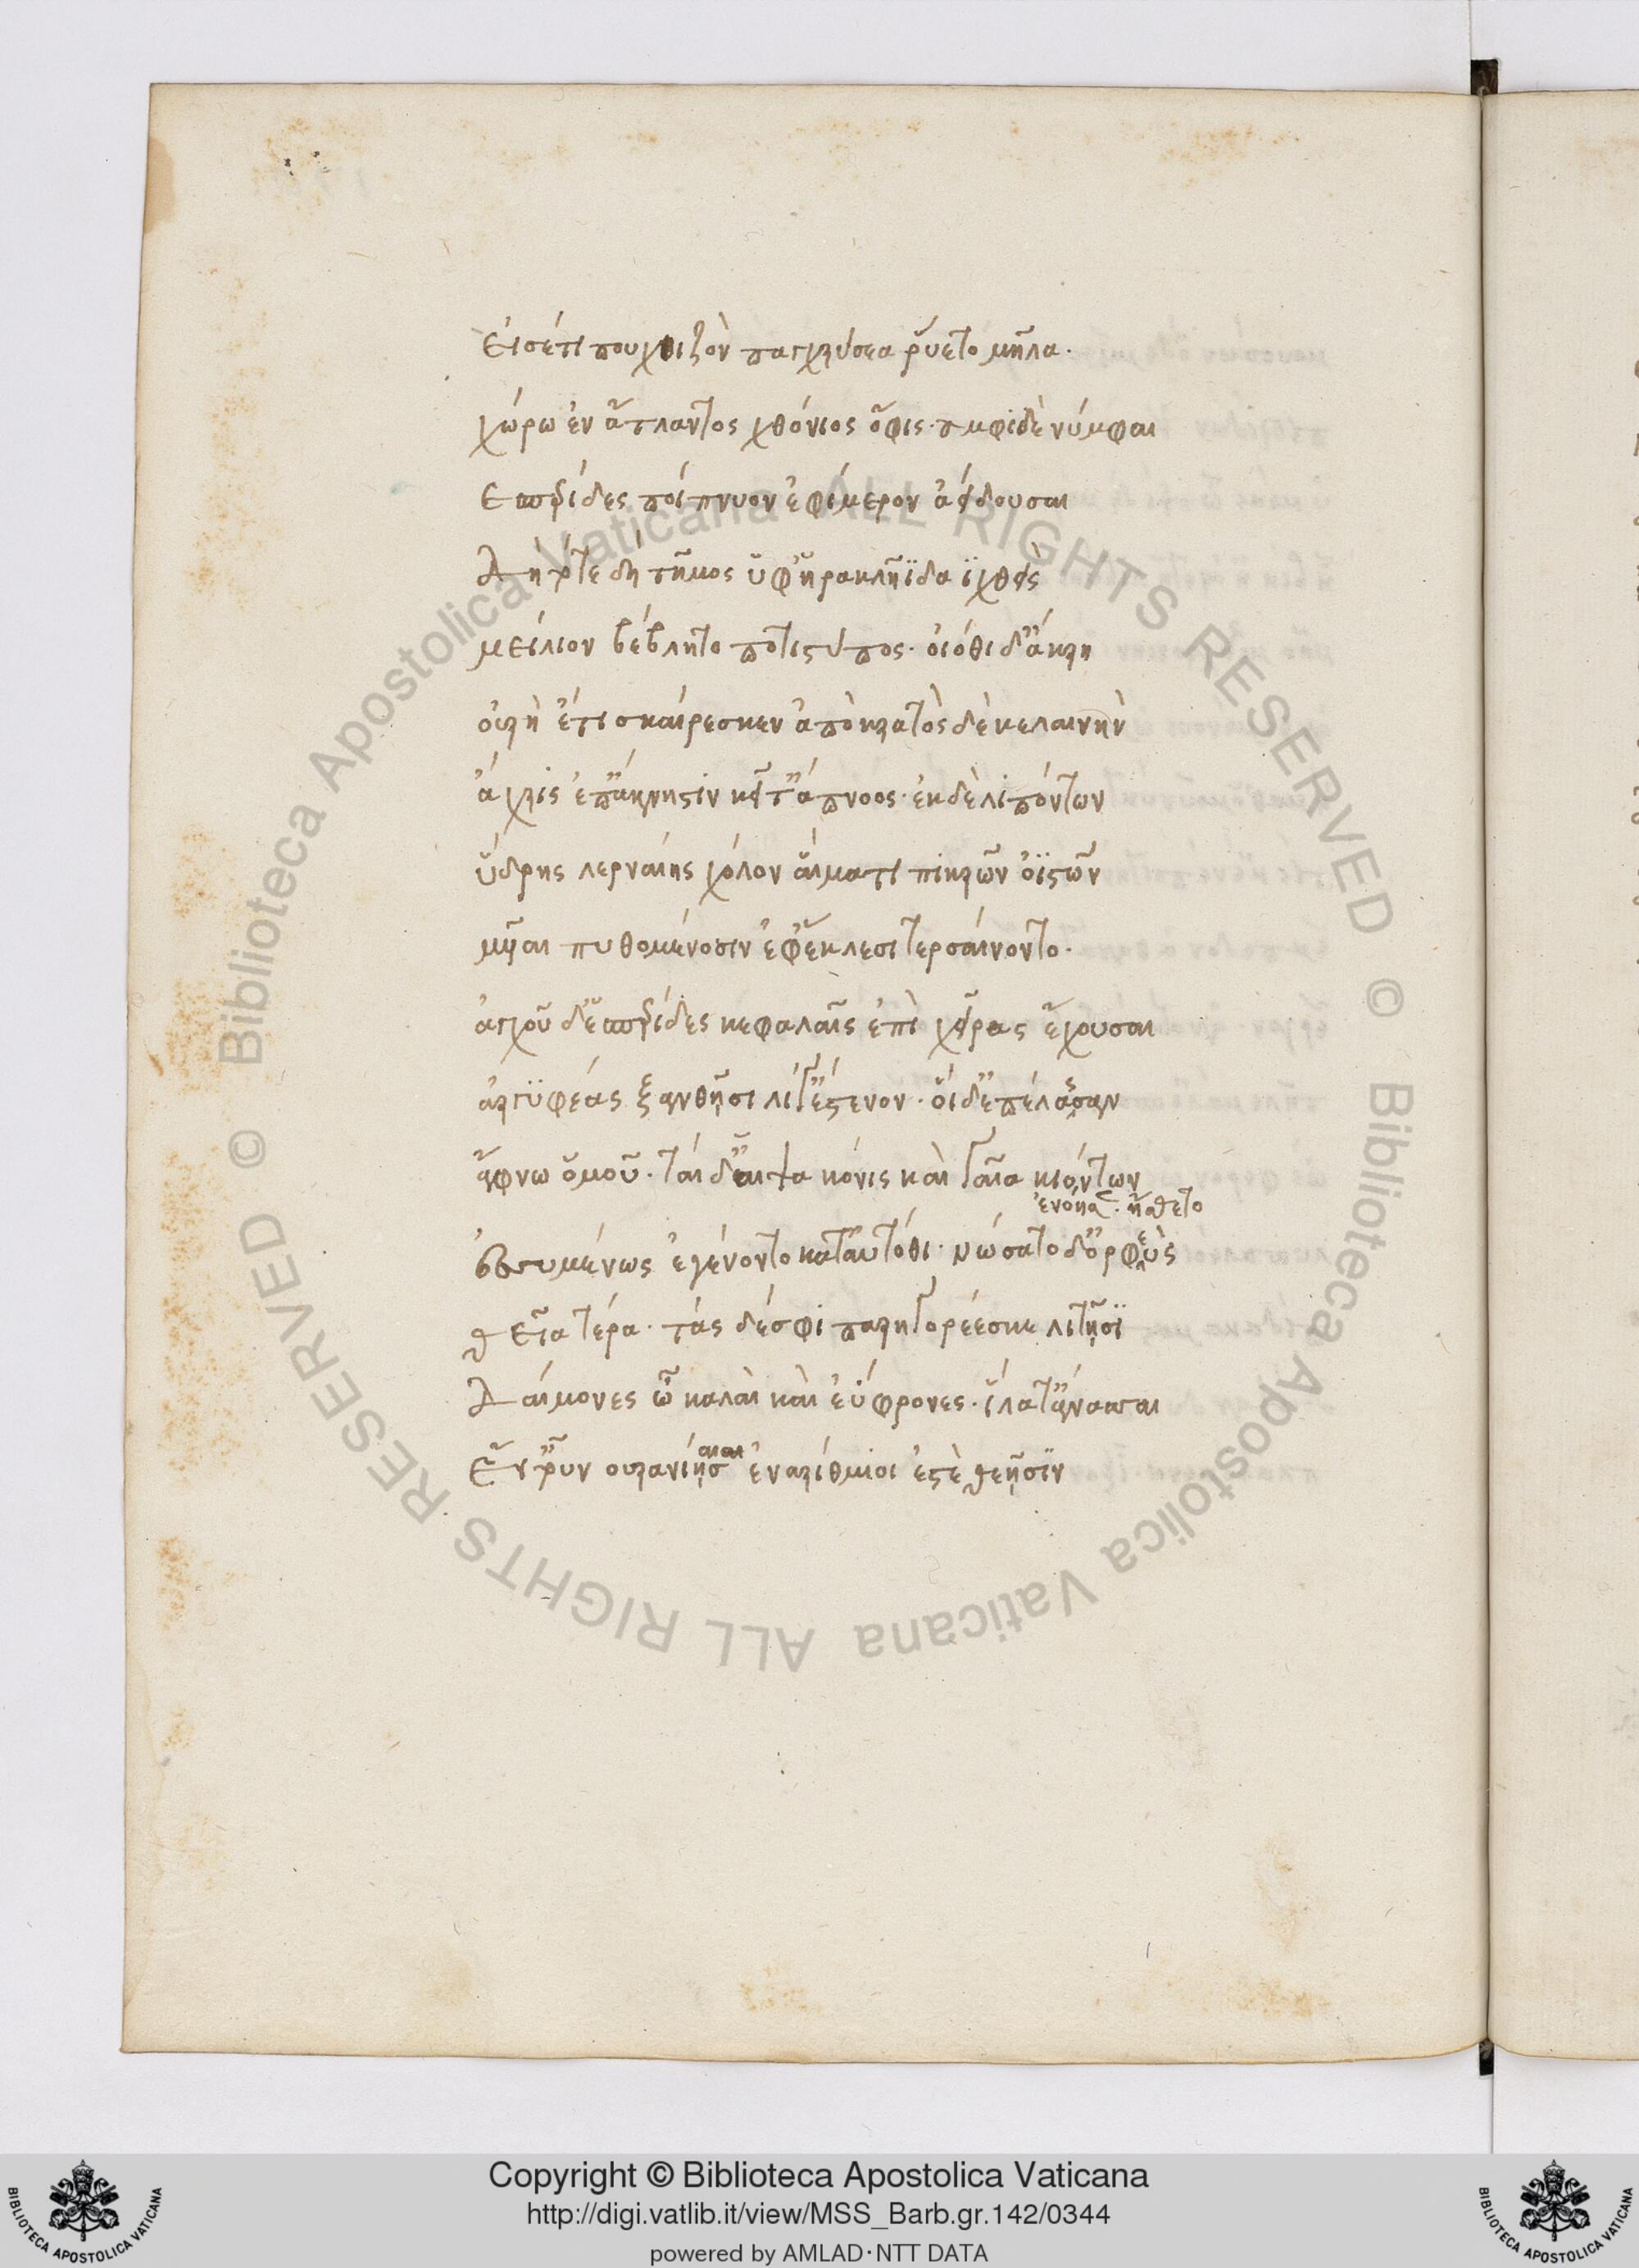 εἰσέτι που χθιζὸν παγχρύσεα ῥύετο μῆλα·
χώρω ἐν ἄτλαντος χθόνιος ὄφις· ἀμφὶ δὲ νύμφαι
ἑσπερίδες ποίπνυον ἐφίμερον ἀείδουσαι
δὴ τῆμος ὑφ' ἡρακλῆϊ δαϊχθεὶς
μείλιον βέβλητο ποτὶ στύπος· οἰόθι δ' ἄκρη
οὐρὴ ἔτι σκαίρεσκεν ἀπὸ κρατὸς δὲ κελαινὴν
ἄχρις ἐπ' ἄκνηστιν κεῖτ' ἄπνοος· ἐκ δὲ λιπόντων
ὕδρης λερναίης χόλον αἵματι πικρῶν ὀϊστῶν
μυῖαι πυθομένοισιν ἐφ' ἕλκεσι τερσαίνοντο·
ἀγχοῦ δ' ἑσπερίδες κεφαλαῖς ἐπὶ χεῖρας ἔχουσαι
ἀργυφέας ξανθῇσι λίγ' ἔστενον· οἱ δ' ἐπέλασσαν
ἄφνω ὁμοῦ· ταὶ δ' αἶψα κόνις καὶ γαῖα κιόντων
ἐνόησ. ᾔσθετο
ἐσσυμένως ἐγένοντο καταυτόθι· νώσατο δ' ὀρφεὺς
θεῖα τέρα· τὰς δέ σφι παρηγορέεσκε λιτῇσϊ
δαίμονες ὦ καλαὶ καὶ ἐΰφρονες· ἵλατ' ἄνασσαι
εἴτ' οὖν οὐρανίῃσ αισι ἐναρίθμιοι ἐστὲ θεῇσϊν
Copyright © Biblioteca Apostolica Vaticana
http://digi.vatlib.it/view/MSS_Barb.gr.142/0344
powered by AMLAD·NTT DATA
© Biblioteca Apostolica Vaticana ALL RIGHTS RESERVED
© Biblioteca Apostolica Vaticana ALL RIGHTS RESERVED
BIBLIOTECA APOSTOLICA VATICANA
BIBLIOTECA APOSTOLICA VATICANA